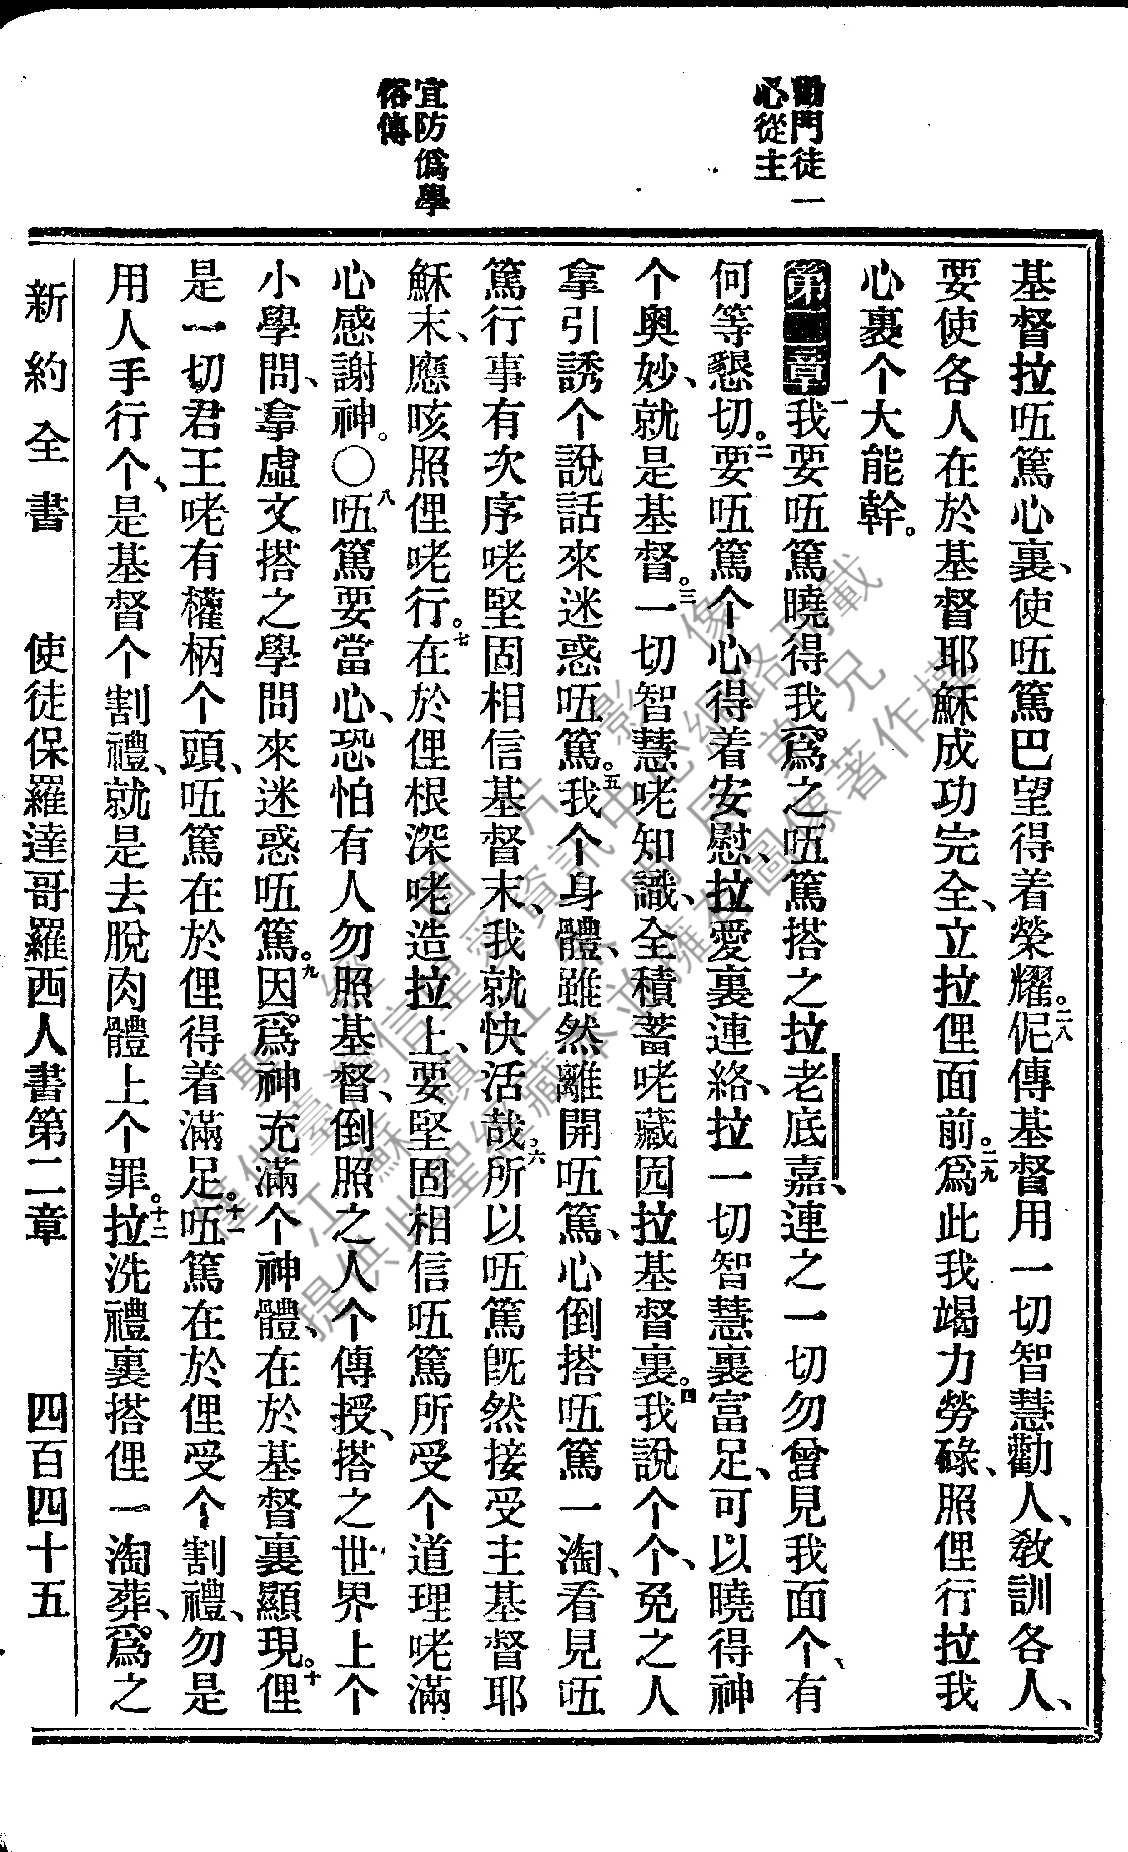 勸門徒一
心從主
宜防僞學
俗傳
基督拉㕶篤心裏、使㕶篤巴望得着榮耀。二八伲傳基督用一切智慧勸人、敎訓各人、
要使各人在於基督耶穌成功完全、立拉俚面前。二九爲此我竭力勞碌、照俚行拉我
心裏个大能幹。
第二章一我要㕶篤曉得我爲之㕶篤搭之拉老底嘉、連之一切勿曾見我面个、有
何等懇切。二要㕶篤个心得着安慰、拉愛裏連絡、拉一切智慧裏富足、可以曉得神
个奥妙、就是基督。三一切智慧咾知識、全積蓄咾藏囥拉基督裏。四我說个个、免之人
拿引誘个說話來迷惑㕶篤。五我个身體、雖然離開㕶篤、心倒搭㕶篤一淘、看見㕶
篤行事有次序咾堅固相信基督末、我就快活哉。六所以㕶篤旣然接受主基督耶
穌末、應咳照俚咾行。七在於俚根深咾造拉上、要堅固相信㕶篤所受个道理咾滿
心感謝神。〇八㕶篤要當心、恐怕有人勿照基督、倒照之人个傳授、搭之世界上个
小學問、拿虛文搭之學問來迷惑㕶篤。九因爲神充滿个神體、在於基督裏顯現。十俚
是一切君王咾有權柄个頭、㕶篤在於俚得着滿足。十一㕶篤在於俚受个割禮、勿是
用人手行个、是基督个割禮、就是去脫肉體上个罪。十二拉洗禮裏搭俚一淘葬、爲之
新約全書　使徒保羅達哥羅西人書第二章　四百四十五
聖經圖片影像
僅供臺灣信望愛資訊中心網路刊載
提供此聖經藏本並擁有圖像著作權